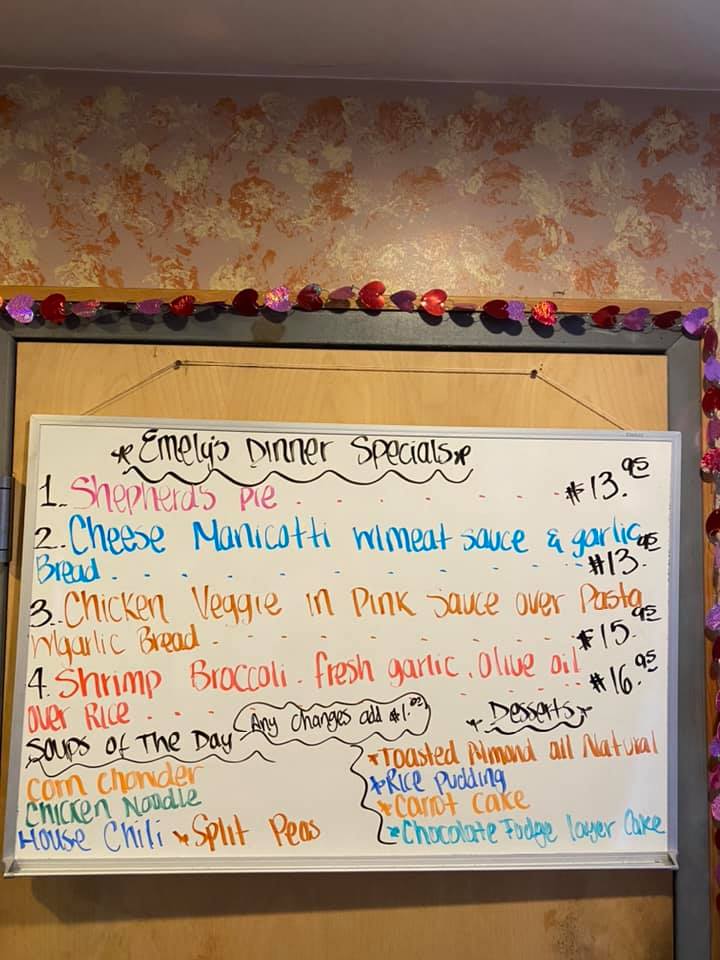 *Emely's Dinner Specials*
1. Shepherds Pie . . . . . . $13.95
2. Cheese Manicotti w/meat sauce & garlic
Bread . . . . . . . . . $13.95
3. Chicken Veggie in Pink Sauce over Pasta
w/garlic Bread . . . . . . . $15.95
4. Shrimp Broccoli. fresh garlic. olive oil
over Rice . . . . $16.95
Any changes add $1.00
Soups of The Day
Corn Chowder
Chicken Noodle
House Chili *Split Peas
*Desserts*
*Toasted Almond all Natural
*Rice Pudding
*Carrot Cake
*Chocolate Fudge layer Cake